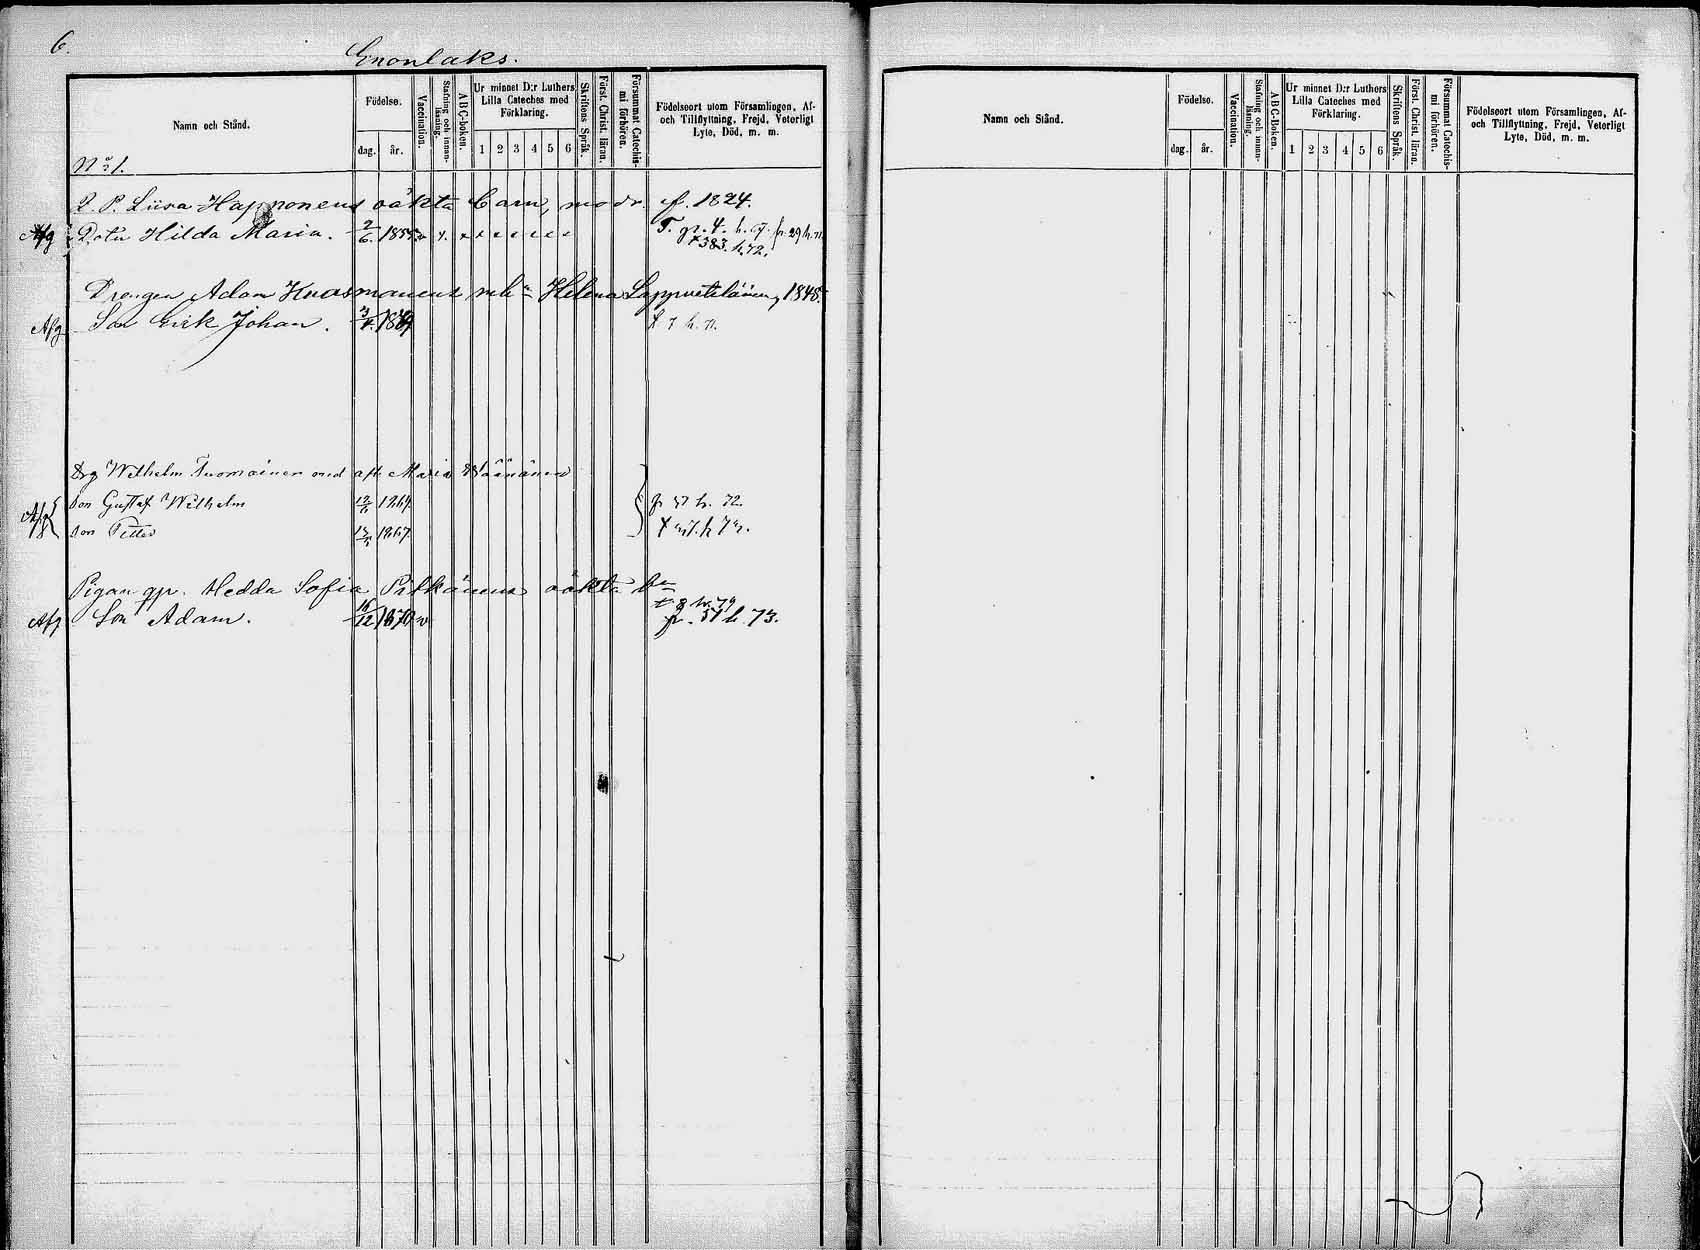 6.
Enonlaks.
Namn och Stånd.
Födelse.
dag. år.
Vaccination.
Stafning och innanläsning.
ABC-boken.
Ur minnet D:r Luthers Lilla Cateches med Förklaring.
1 2 3 4 5 6
Skriftens Språk.
Först. Christ. läran.
Försummat Catechismi förhören.
Födelseort utom Församlingen, Af- och Tillflyttning, Frejd, Veterligt Lyte, Död, m. m.
No 1.
Q. P. Liisa Happonens oäkta barn, modr. f. 1824.
Afg Dotr Hilda Maria. 2/6. 185 v x. x x x x x x
383. h. 72.
Drengen Adam Knasmanens Helena Lappveteläinen, 1848.
Afg Son Erik Johan.
Drg Wilhelm Tuomainen och afl. Maria Väänänens
Afg Son Gustaf Wilhelm 1864. fr 57 h. 72.
Son Petter 1867.
Pigan qp. Hedda Sofia Pitkänens oäkta bn
Afg Son Adam. 16/12 1870 v
8 h. 79
fr. 51 h. 73.
Namn och Stånd.
Födelse.
dag. år.
Vaccination.
Stafning och innanläsning.
ABC-Boken.
Ur minnet D:r Luthers Lilla Cateches med Förklaring.
1 2 3 4 5 6
Skriftens Språk.
Först. Christ. läran.
Försummat Catechismi förhören.
Födelseort utom Församlingen, Af- och Tillflyttning, Frejd, Veterligt Lyte, Död, m. m.